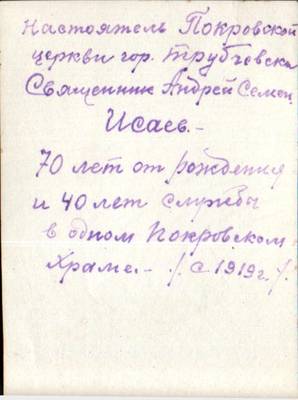 Настоятель Покровской
церкви гор. Трубчевска
Священник Андрей Семен
Исаев.-
70 лет от рождения
и 40 лет службы
в одном Покровском
храме.- /. с 1919г. /.